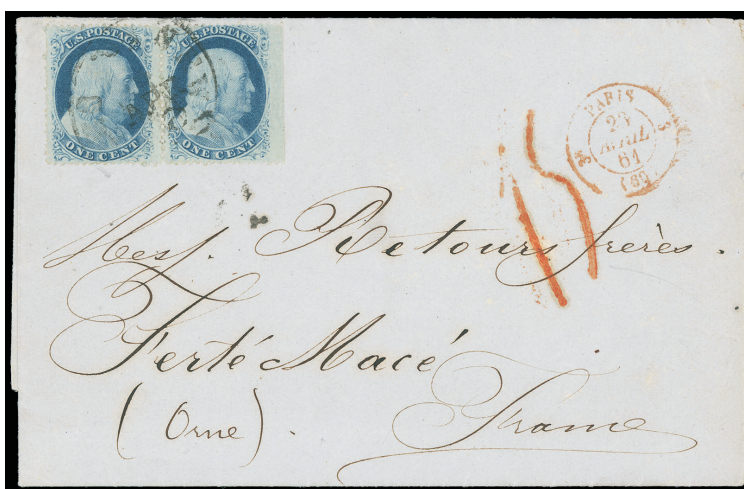 U.S. POSTAGE
ONE CENT
U.S. POSTAGE
ONE CENT
APR
PARIS
AVRIL
61
(60)
15
Mess. Retours frères.
Ferté Macé
(Orne).
France